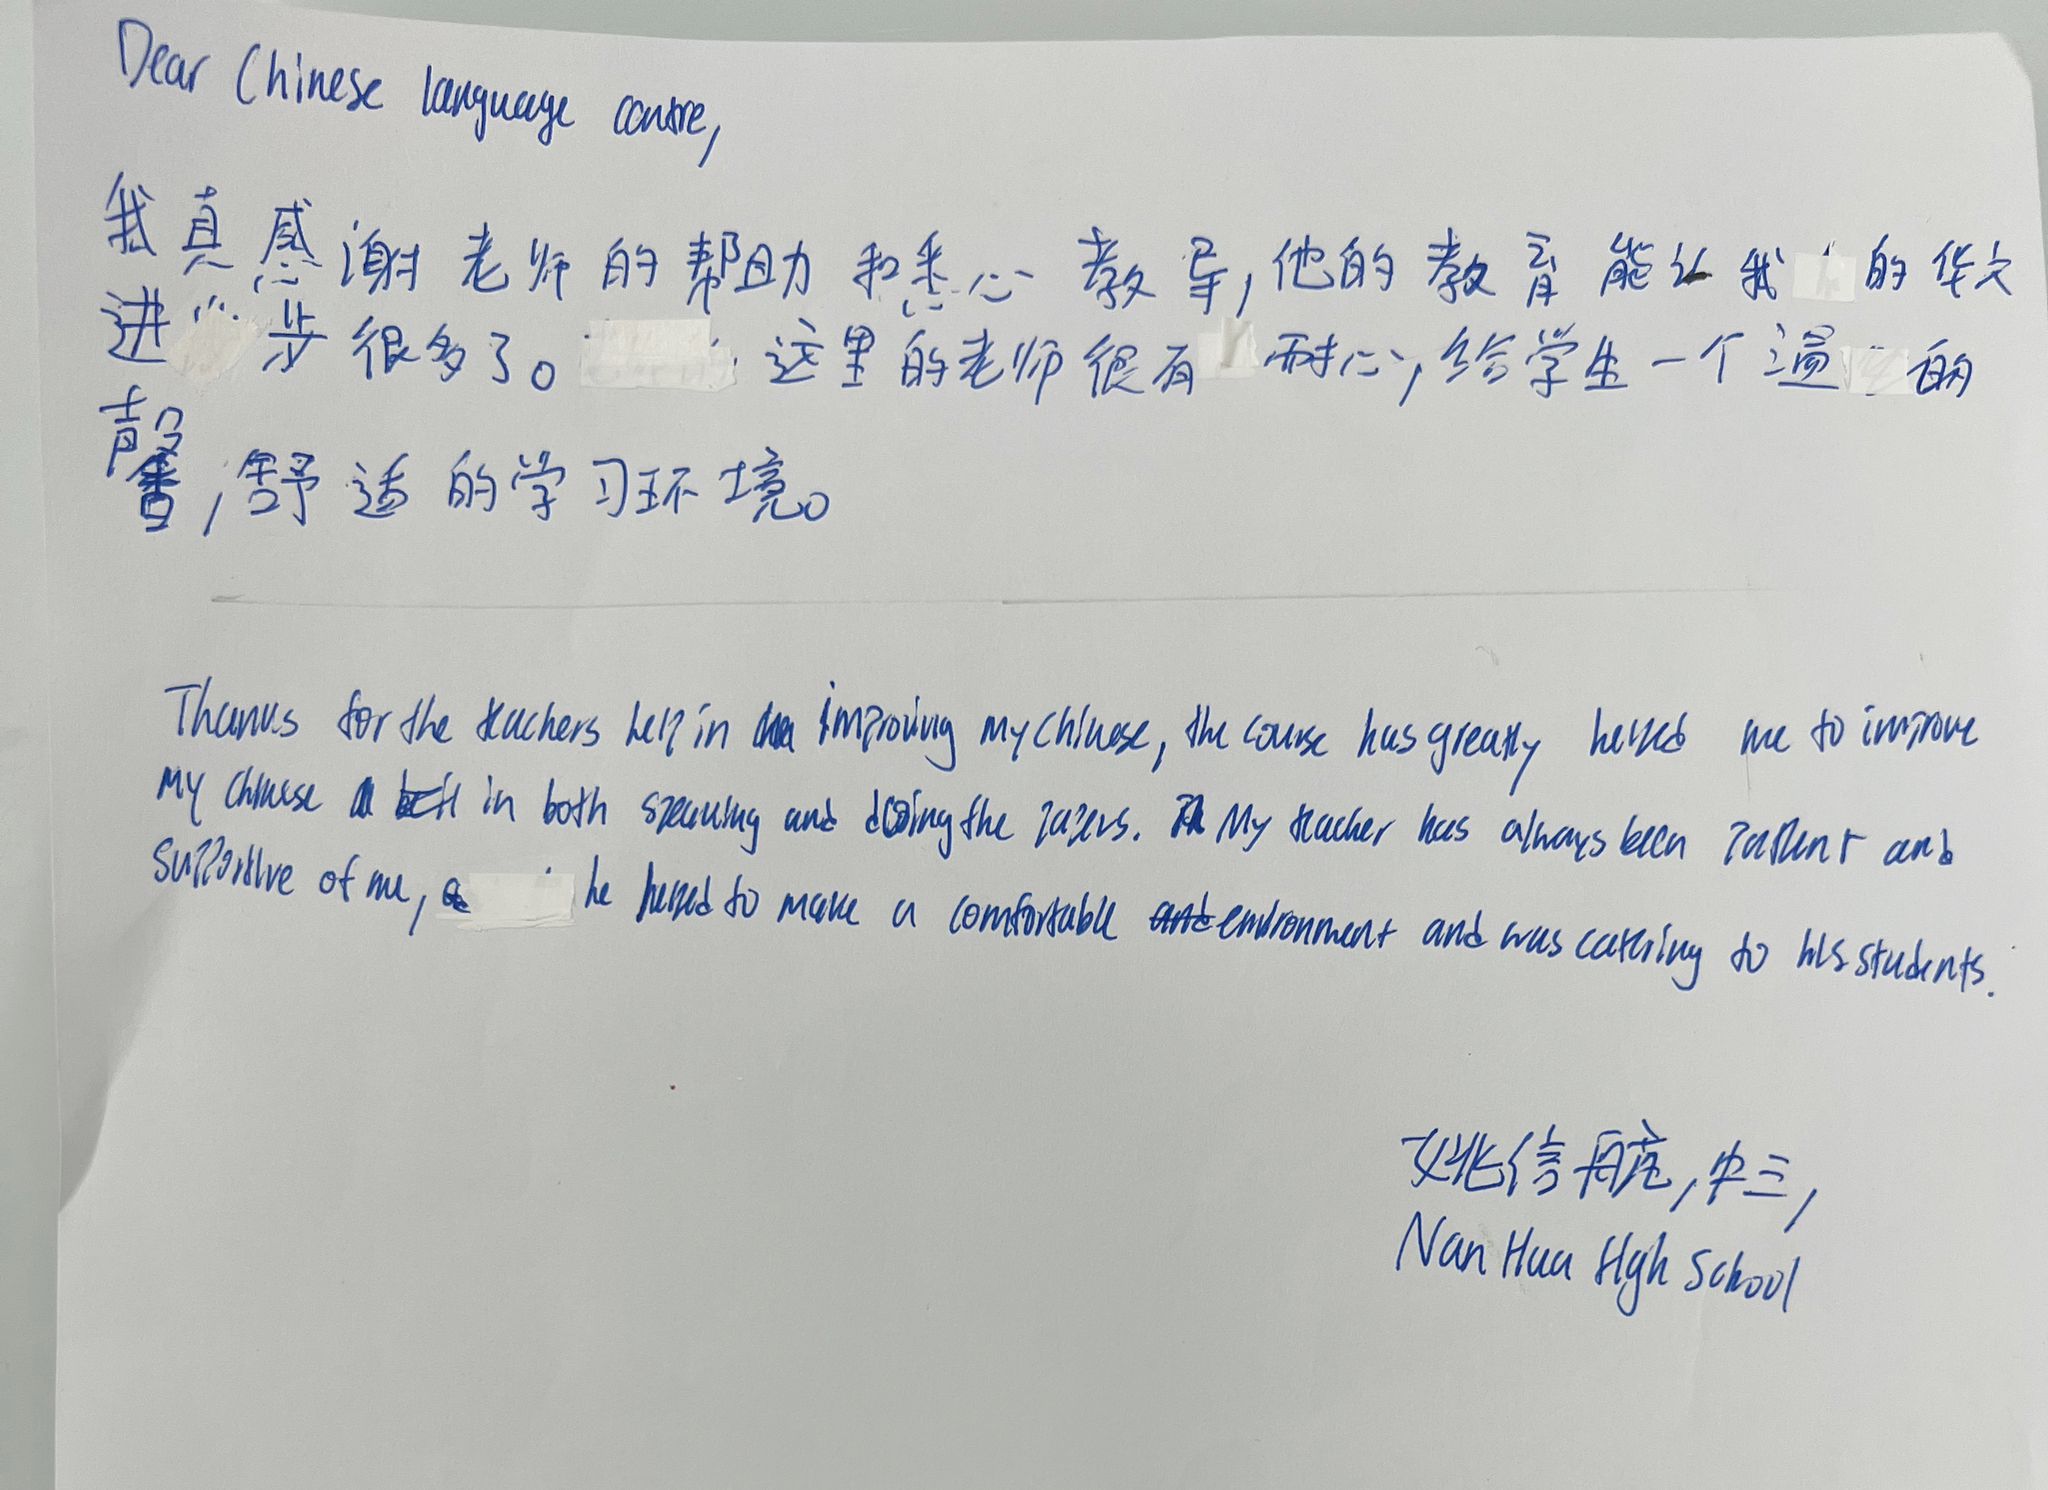 Dear Chinese language centre,
我真感谢老师的帮助和悉心教导,他的教育能让我的华文
进步很多了。这里的老师很有耐心,给学生一个温的
馨,舒适的学习环境。
Thanks for the teachers help in improving my chinese, the course has greatly helped me to improve
my chinese in both speaking and doing the papers. My teacher has always been patient and
supportive of me, he helped to make a comfortable environment and was catering to his students.
姚信,中三,
Nan Hua High School